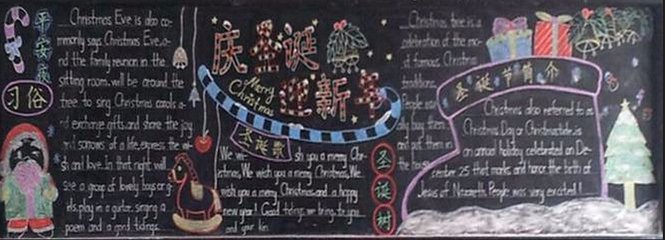 平安夜
习俗
Christmas Eve is also co-
mmonly says Christmas Eve, a-
nd the family reunion in the
sitting room, will be around the
tree to sing Christmas carols a-
nd exchange gifts and share the joy
and sorrows of a life, express the wi-
sh and love. In that night will
see a group of lovely boys or gi-
rls, play in a guitar, singing a
poem and a good tidings.
庆圣诞
迎新年
Merry
Christmas
圣诞歌
We wi- sh you a merry Chr-
istmas, We wish you a merry Christmas, We
wish you a merry Christmas and a happy
new year! Good tidings we bring to you
and your kin.
圣诞树
Christmas tree is a
celebration of the mo-
st famous Christmas
traditions.
People
buy them
and put them in
the
圣诞节简介
Christmas also referred to as
Christmas Day or Christmastide, is
an annual holiday celebrated on De-
cember 25 that marks and honor the birth of
Jesus of Nazareth. People was very excited!